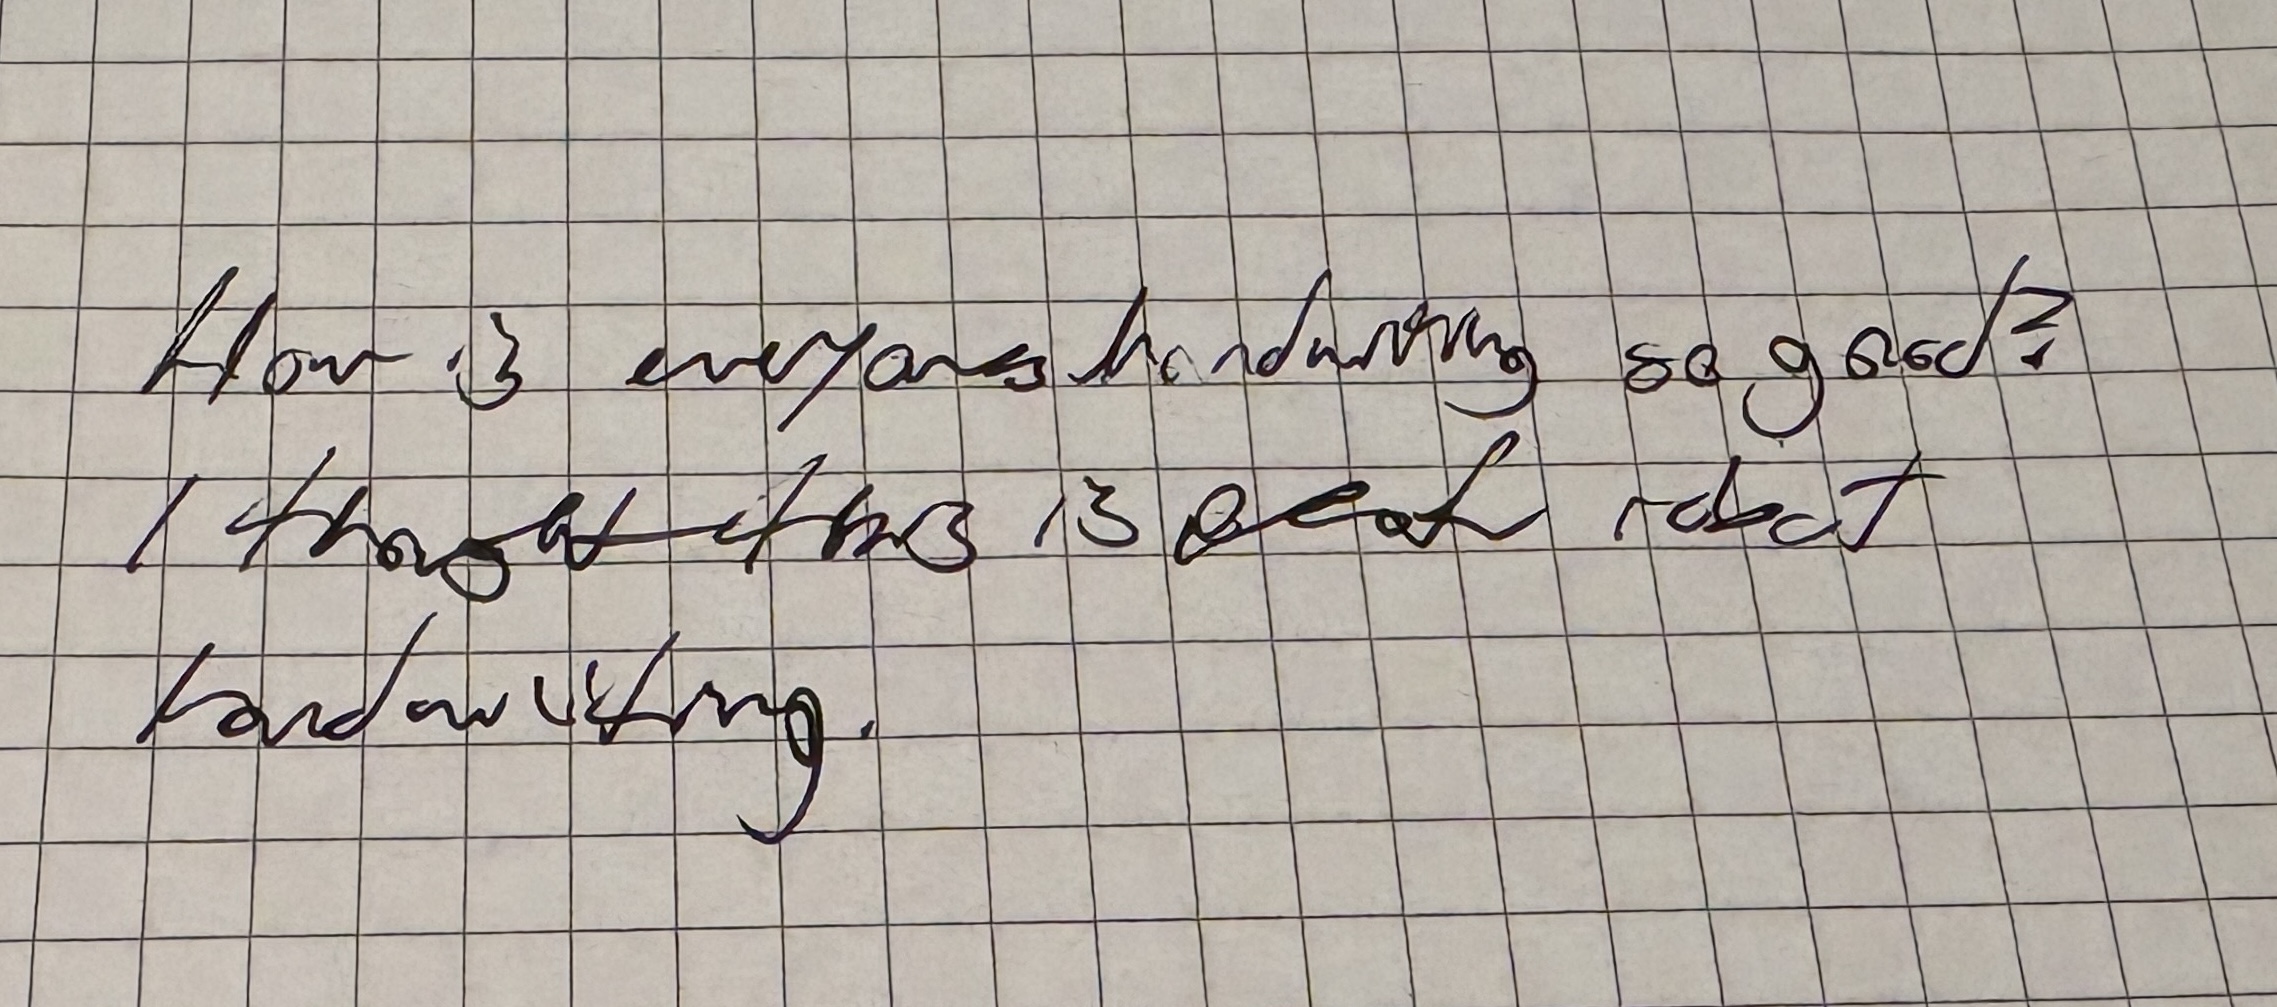 How is everyones handwriting so good?
I thought this is peak robot
handwriting.